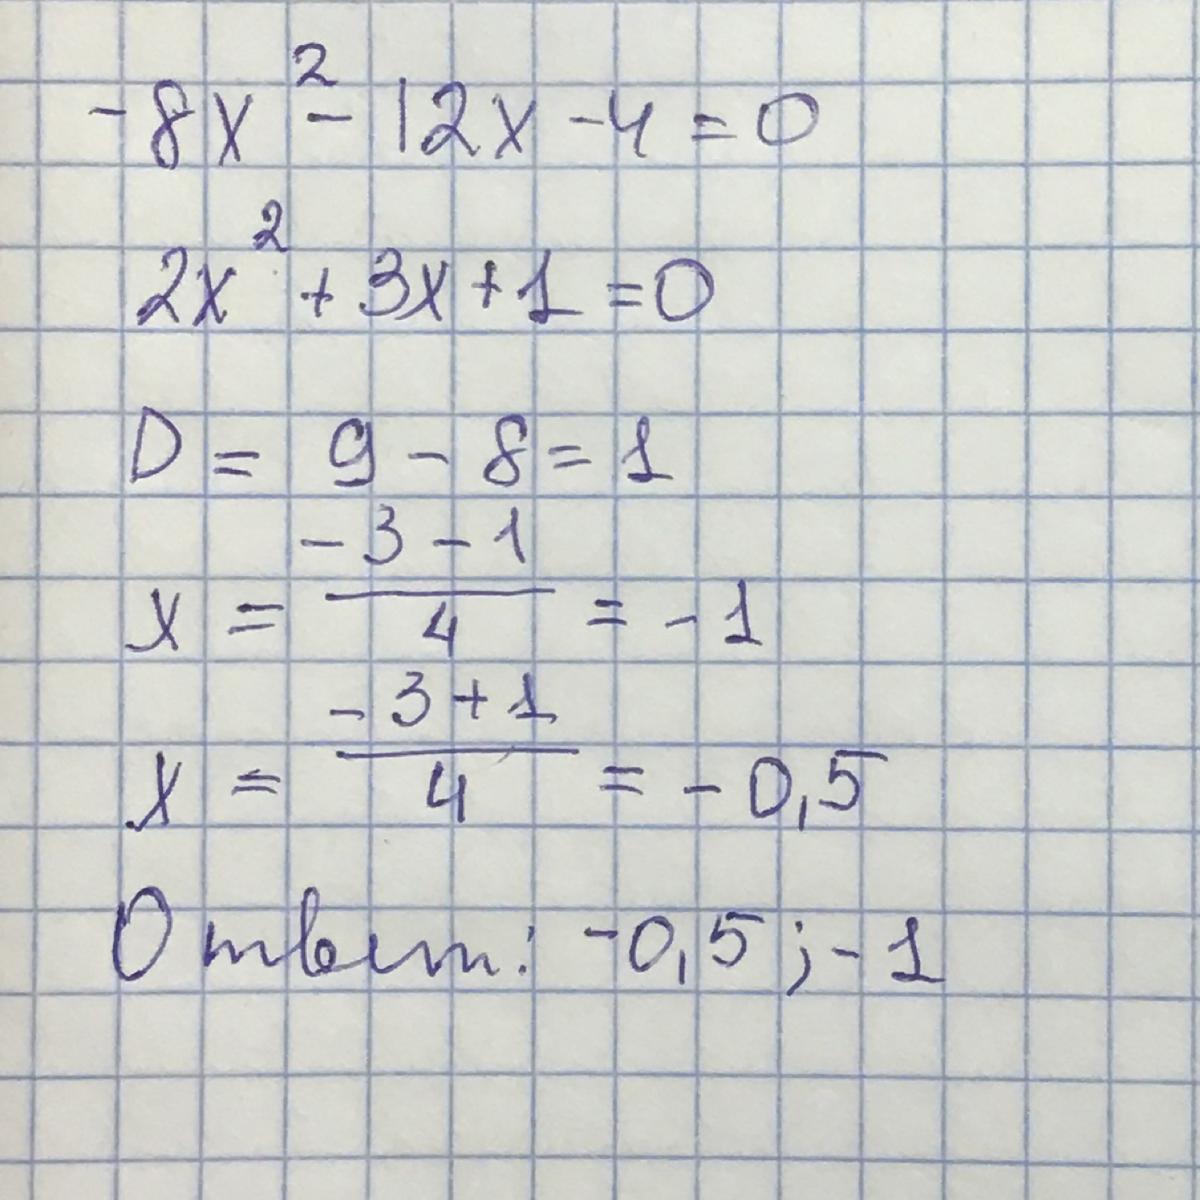 -8x² - 12x - 4 = 0
2x² + 3x + 1 = 0
D = 9 - 8 = 1
x = (-3 - 1)/4 = -1
x = (-3 + 1)/4 = -0,5
Ответ: -0,5; -1